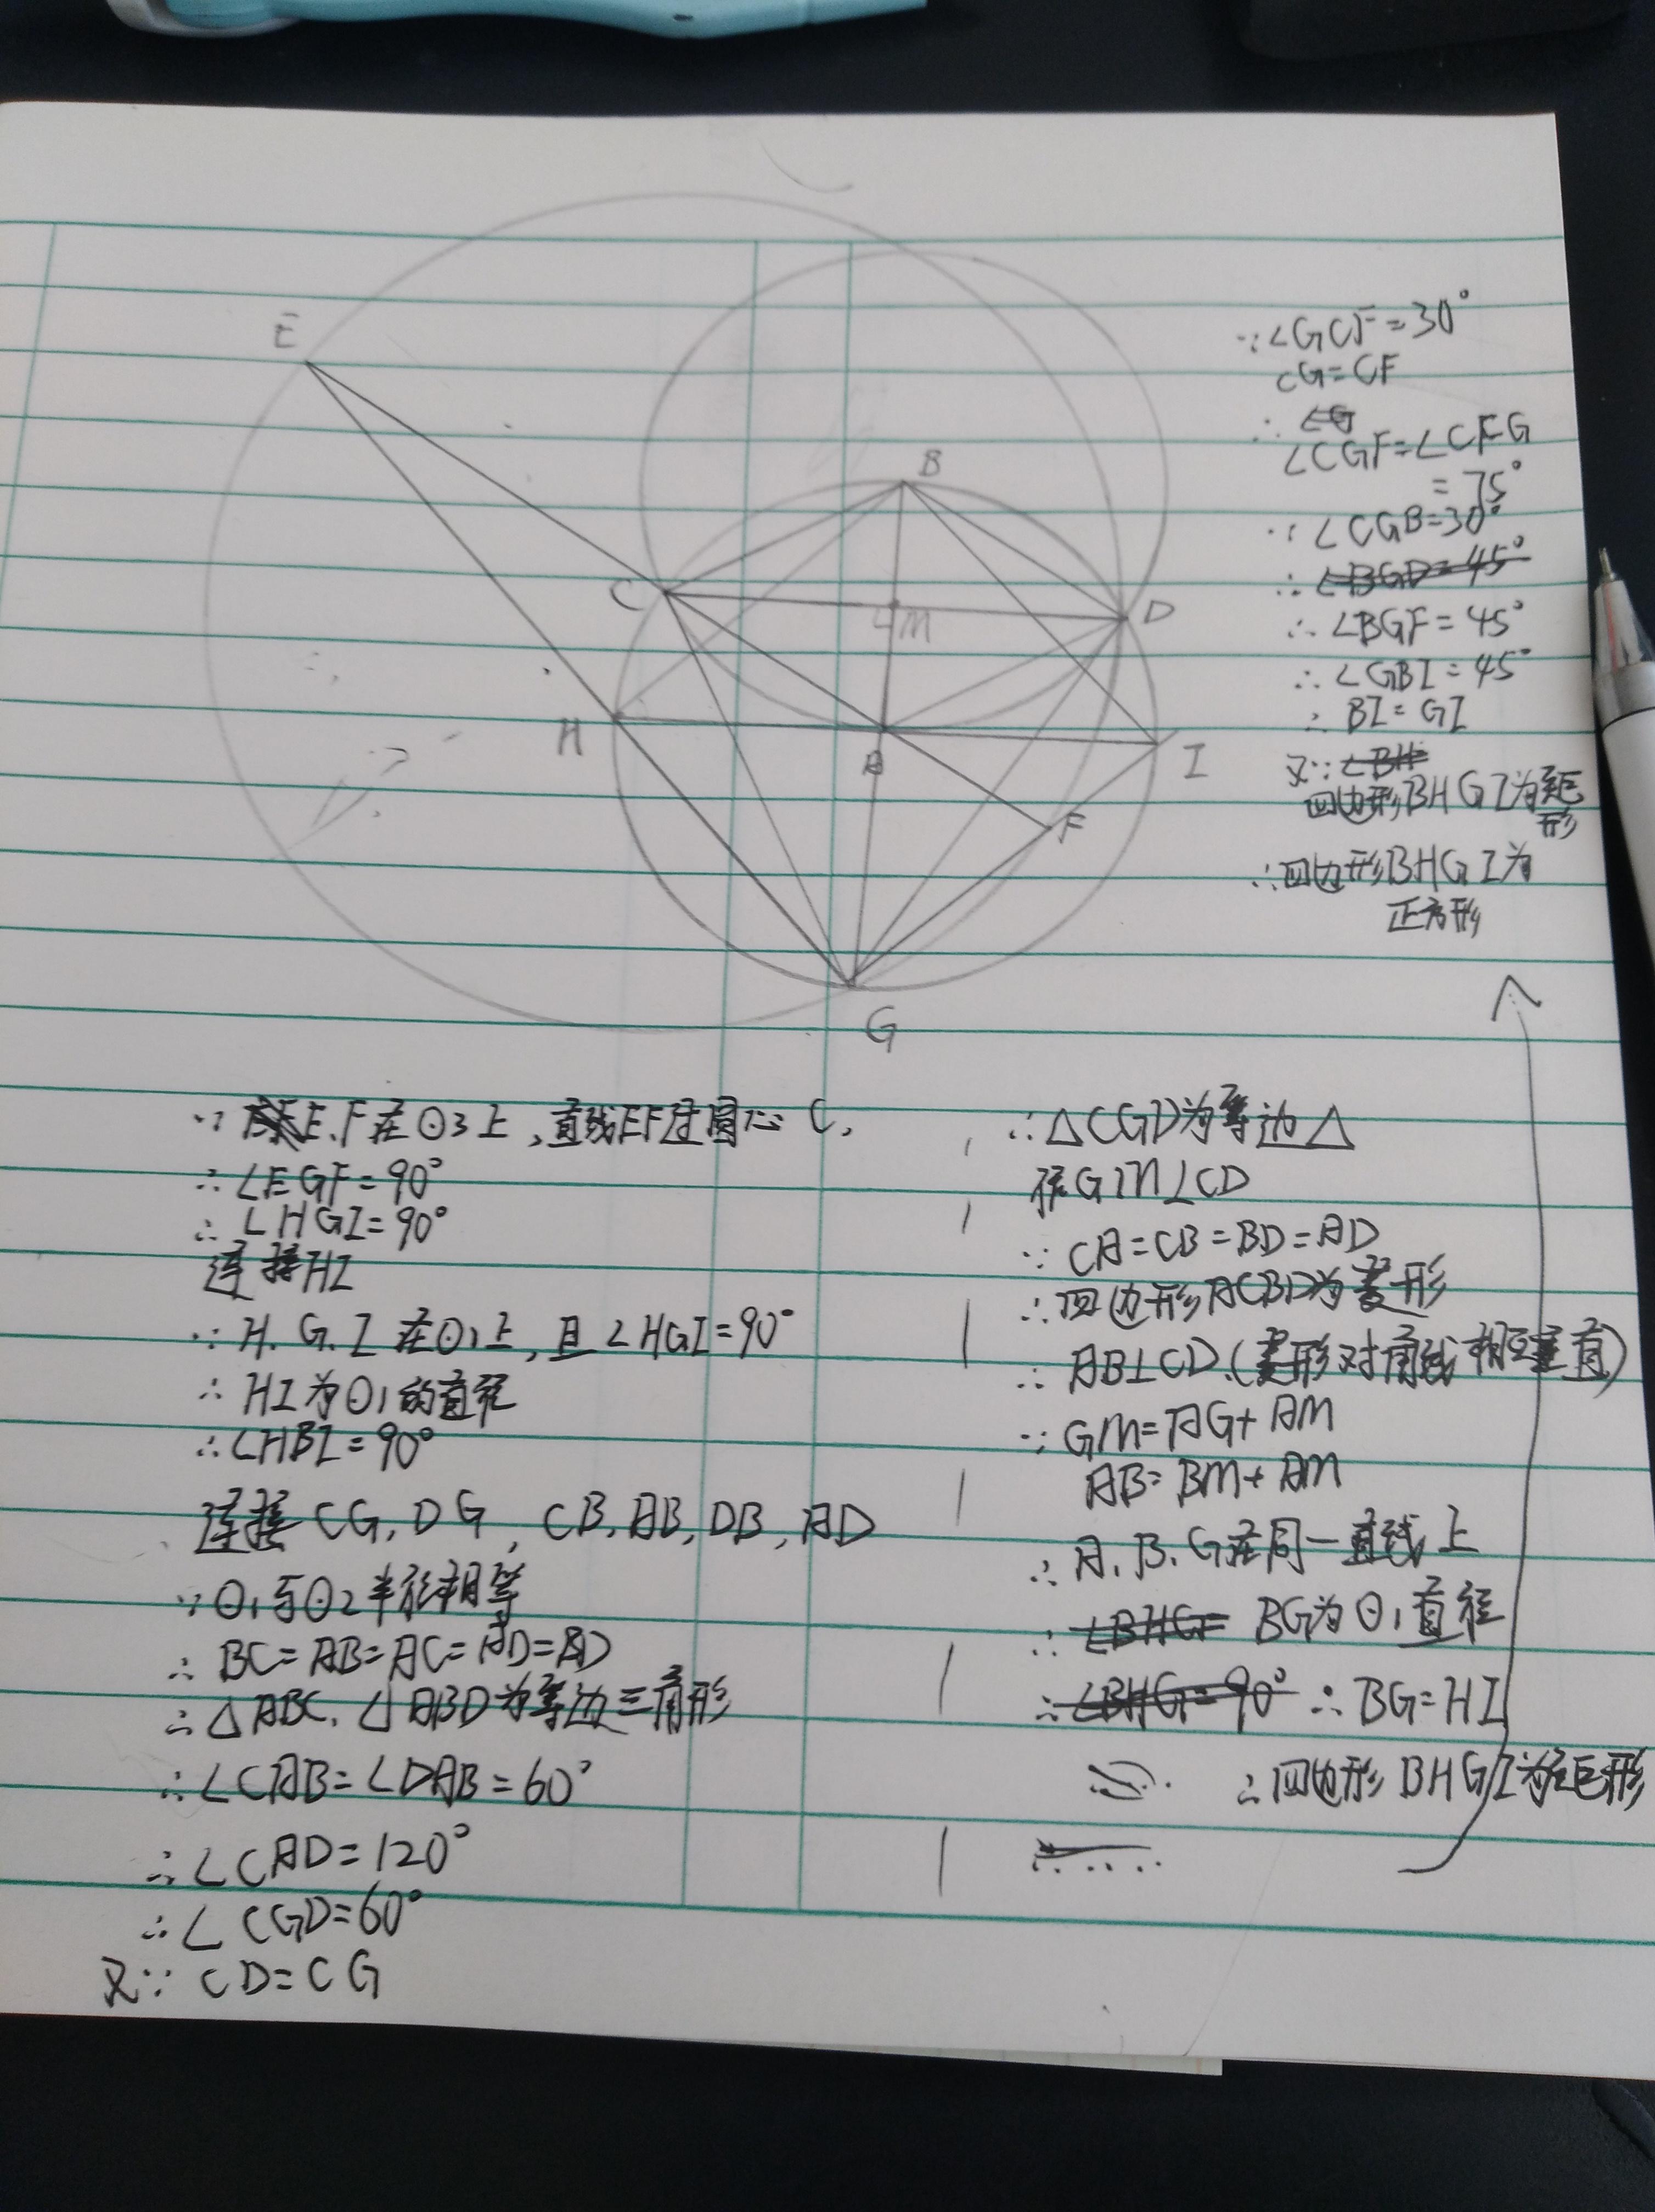 E
B
C
M
D
H
A
I
F
G
∵∠GCF=30°
CG=CF
∴ ∠G
∠CGF=∠CFG
=75°
∵∠CGB=30°
∴∠BGD=45°
∴∠BGF=45°
∴∠GBI=45°
∴ BI=GI
又∵∠BH
四边形BHGI为矩
形
∴四边形BHGI为
正方形
∵ E、F在⊙3上,直线EF过圆心C,
∴∠EGF=90°
∴∠HGI=90°
连接HI
∵H、G、I在⊙1上,且∠HGI=90°
∴HI为⊙1的直径
∴∠HBI=90°
连接CG,DG,CB,AB,DB,AD
∵⊙1与⊙2半径相等
∴BC=AB=AC=AD=BD
∴△ABC、△ABD为等边三角形
∴∠CAB=∠DAB=60°
∴∠CAD=120°
∴∠CGD=60°
又∵CD=CG
∴△CGD为等边△
作GM⊥CD
∵CA=CB=BD=AD
∴四边形ACBD为菱形
∴AB⊥CD.(菱形对角线相互垂直)
∵GM=AG+AM
AB=BM+AM
∴A、B、G在同一直线上
∴∠BHG= BG为⊙1直径
∴∠BHG=90° ∴BG=HI
∴四边形BHGI为矩形